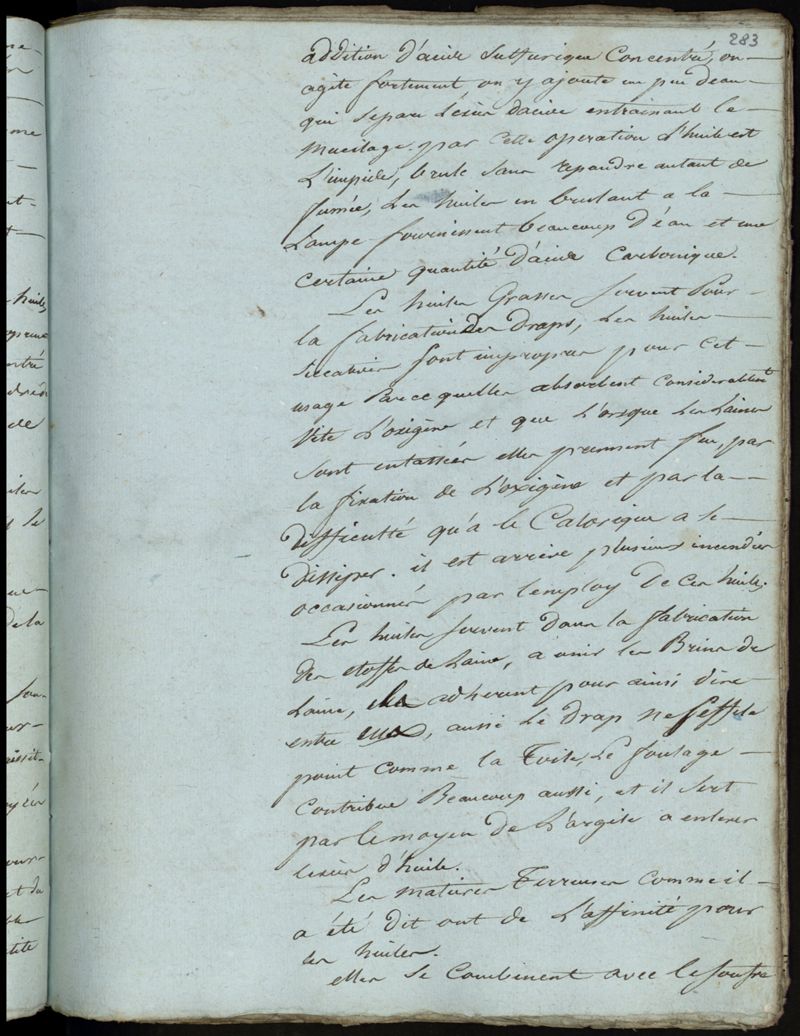 283
addition d'acide Sulfurique Concentré, on
agite fortement, on y ajoute un peu d'eau
qui separe l'excès d'acide entrainant le
mucilage. par cette operation L'huile est
L'impide, brule sans repandre autant de
fumée, Les huiles en brulant a la
Lampe fournissent beaucoup D'éau et une
certaine quantité d'acide Carbonique.
Les huiles Grasses servent Pour
la fabrication Des Draps, Les huiles
siccatives sont impropres pour cet
usage Parce quelles absorbent Considerablement
Vite L'oxigène et que L'orsque Les Laines
sont entassées elles prennent feu, par
la fixation de L'oxigène et par la
difficulté qu'a le Calorique a se
dissiper. il est arrivé plusieurs incendies
occasionnés par l'employ De ces huiles.
Les huiles servent dans la fabrication
des etoffes de Laine, a unir les Brins de
Laine, ils adherent pour ainsi dire
entre eux, aussi Le Drap ne S'effile
point comme la Toile, Le foulage
Contribue Beaucoup aussi, et il sert
par le moyen de L'argile a enlever
l'excès d'huile.
Les matieres Terreuses comme il
a été Dit ont de L'affinité pour
les huiles.
elles se Combinent avec le soufre